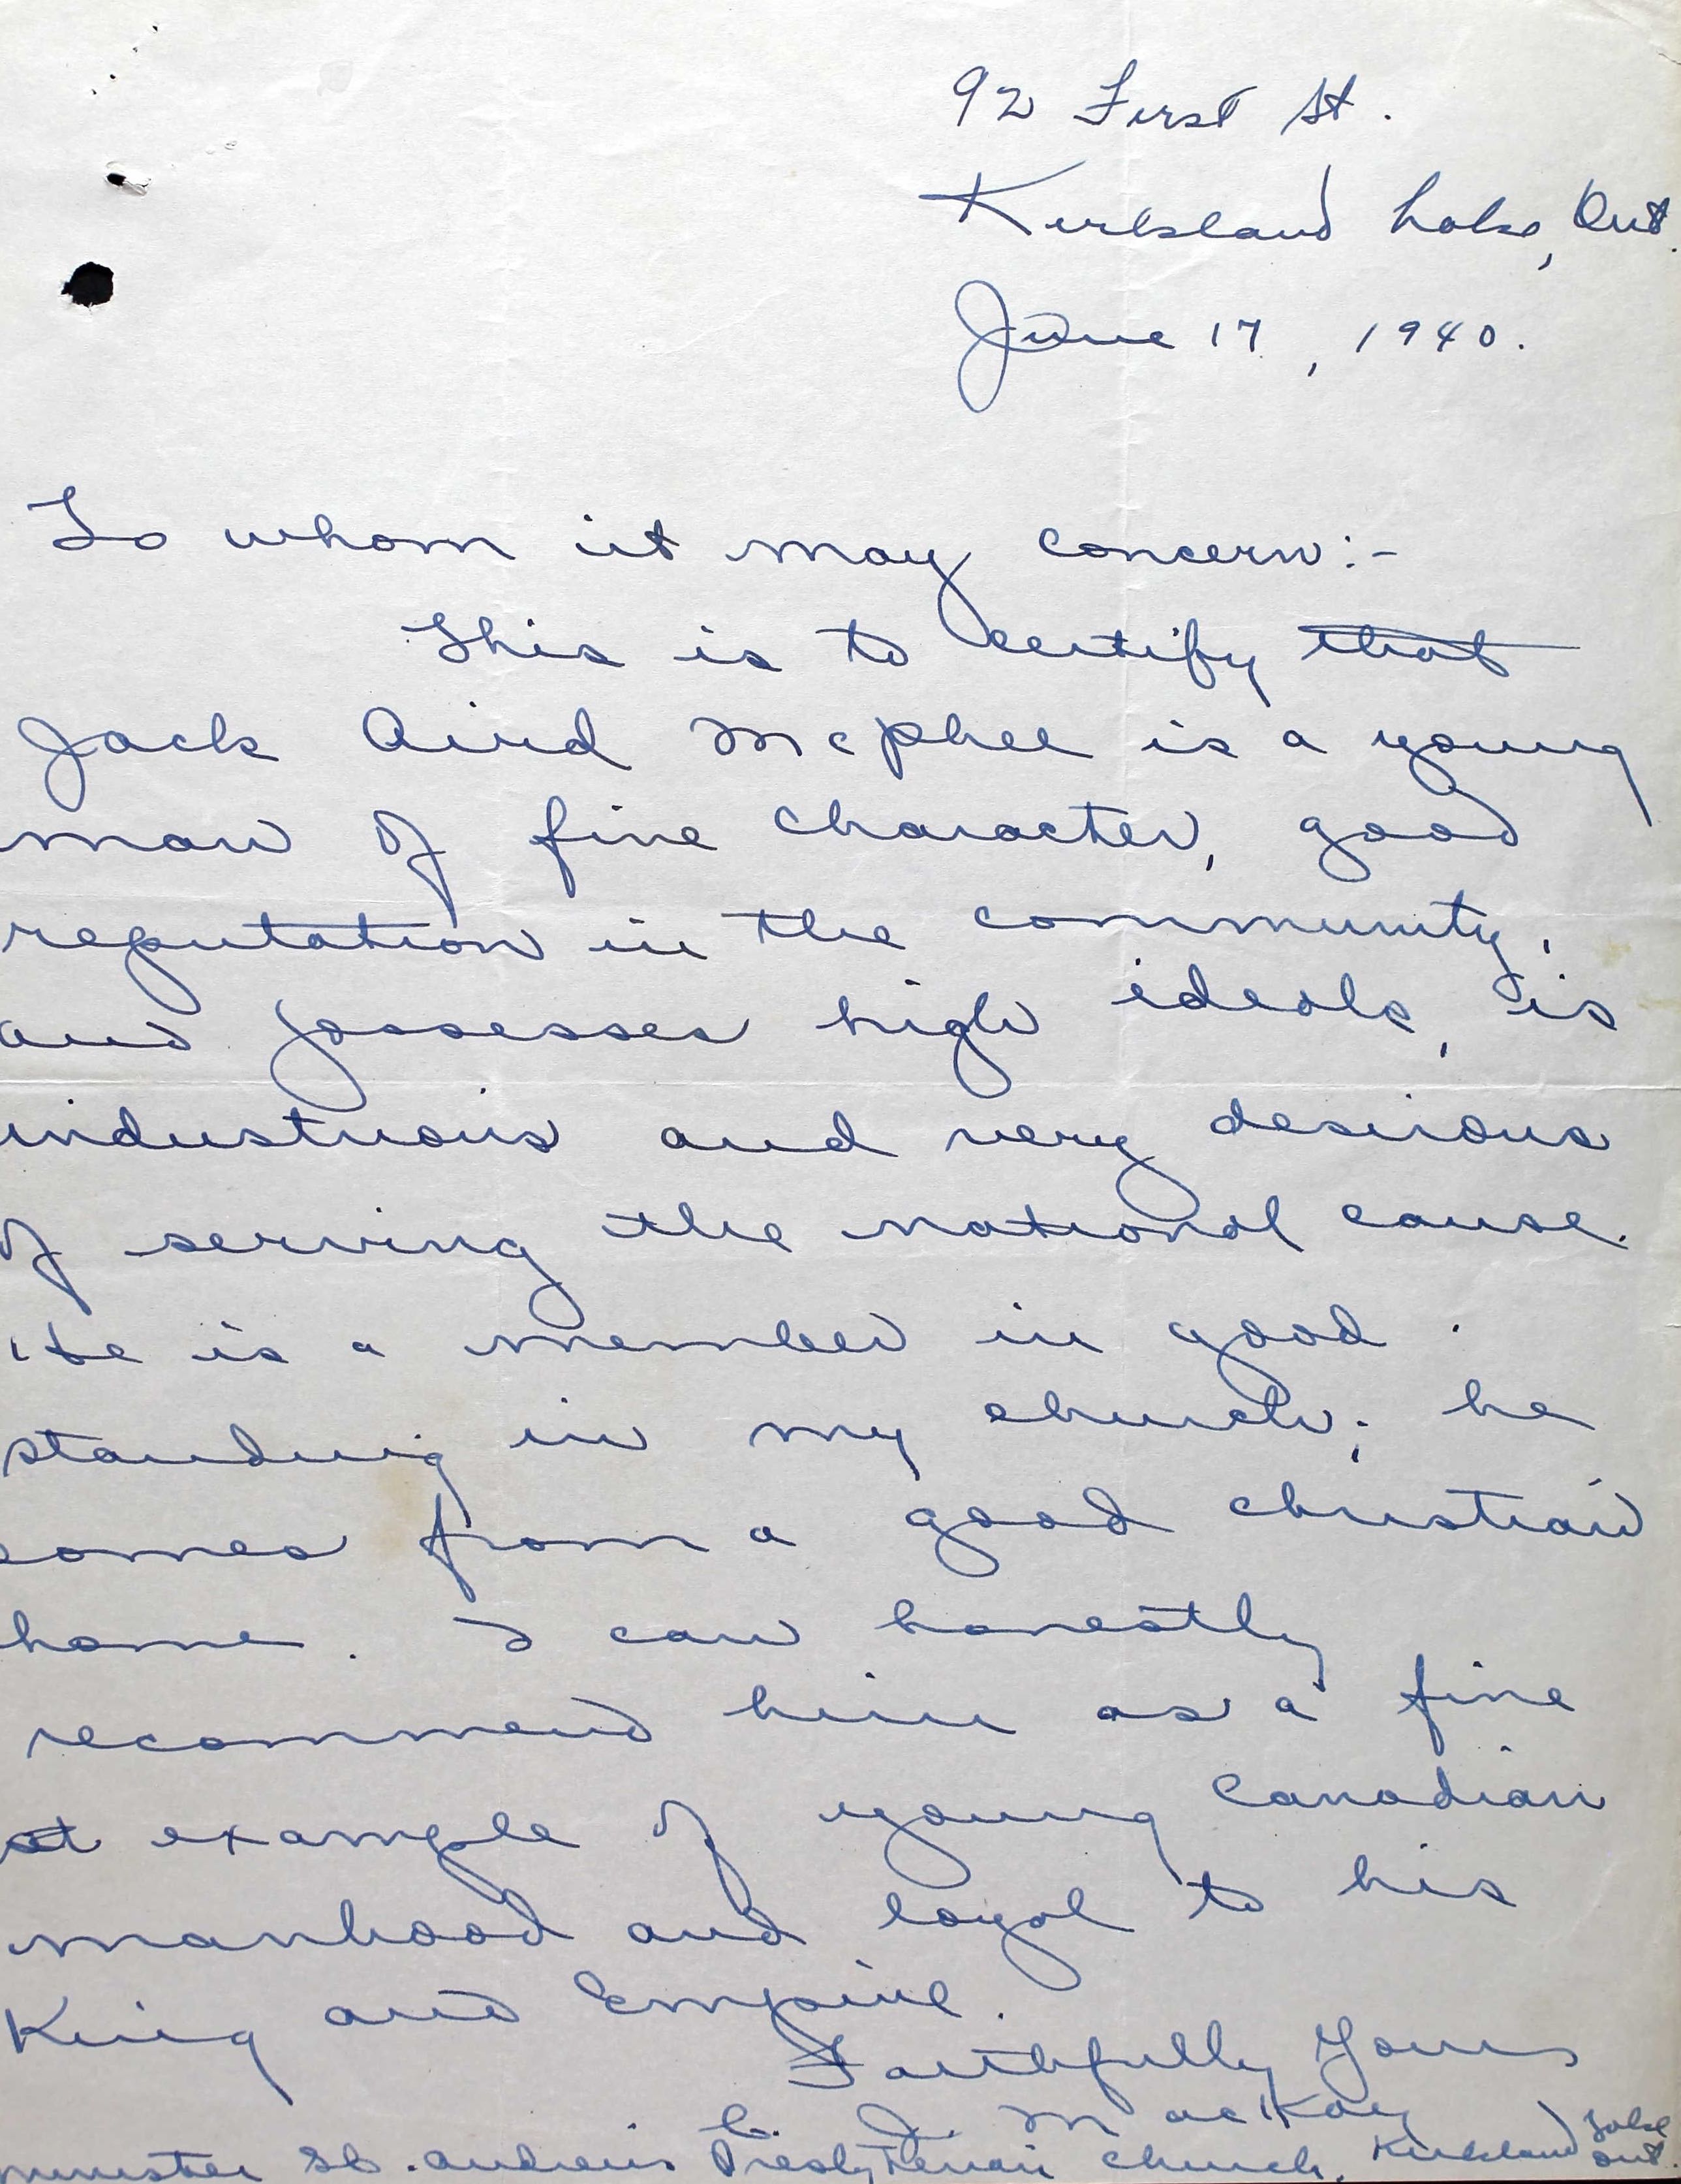 92 First St.
Kirkland Lake, Ont.
June 17, 1940.
To whom it may concern:-
This is to certify that
Jack Aird McPhee is a young
man of fine character, good
reputation in the community,
and possesses high ideals, is
industrious and very desirous
of serving the national cause.
He is a member in good
standing in my church; he
comes from a good christian
home. I can honestly
recommend him as a fine
example of young Canadian
manhood and loyal to his
King and Empire.
Faithfully Yours
C. J. MacKay
minister St. Andrew's Presbyterian Church, Kirkland Lake
Ont.